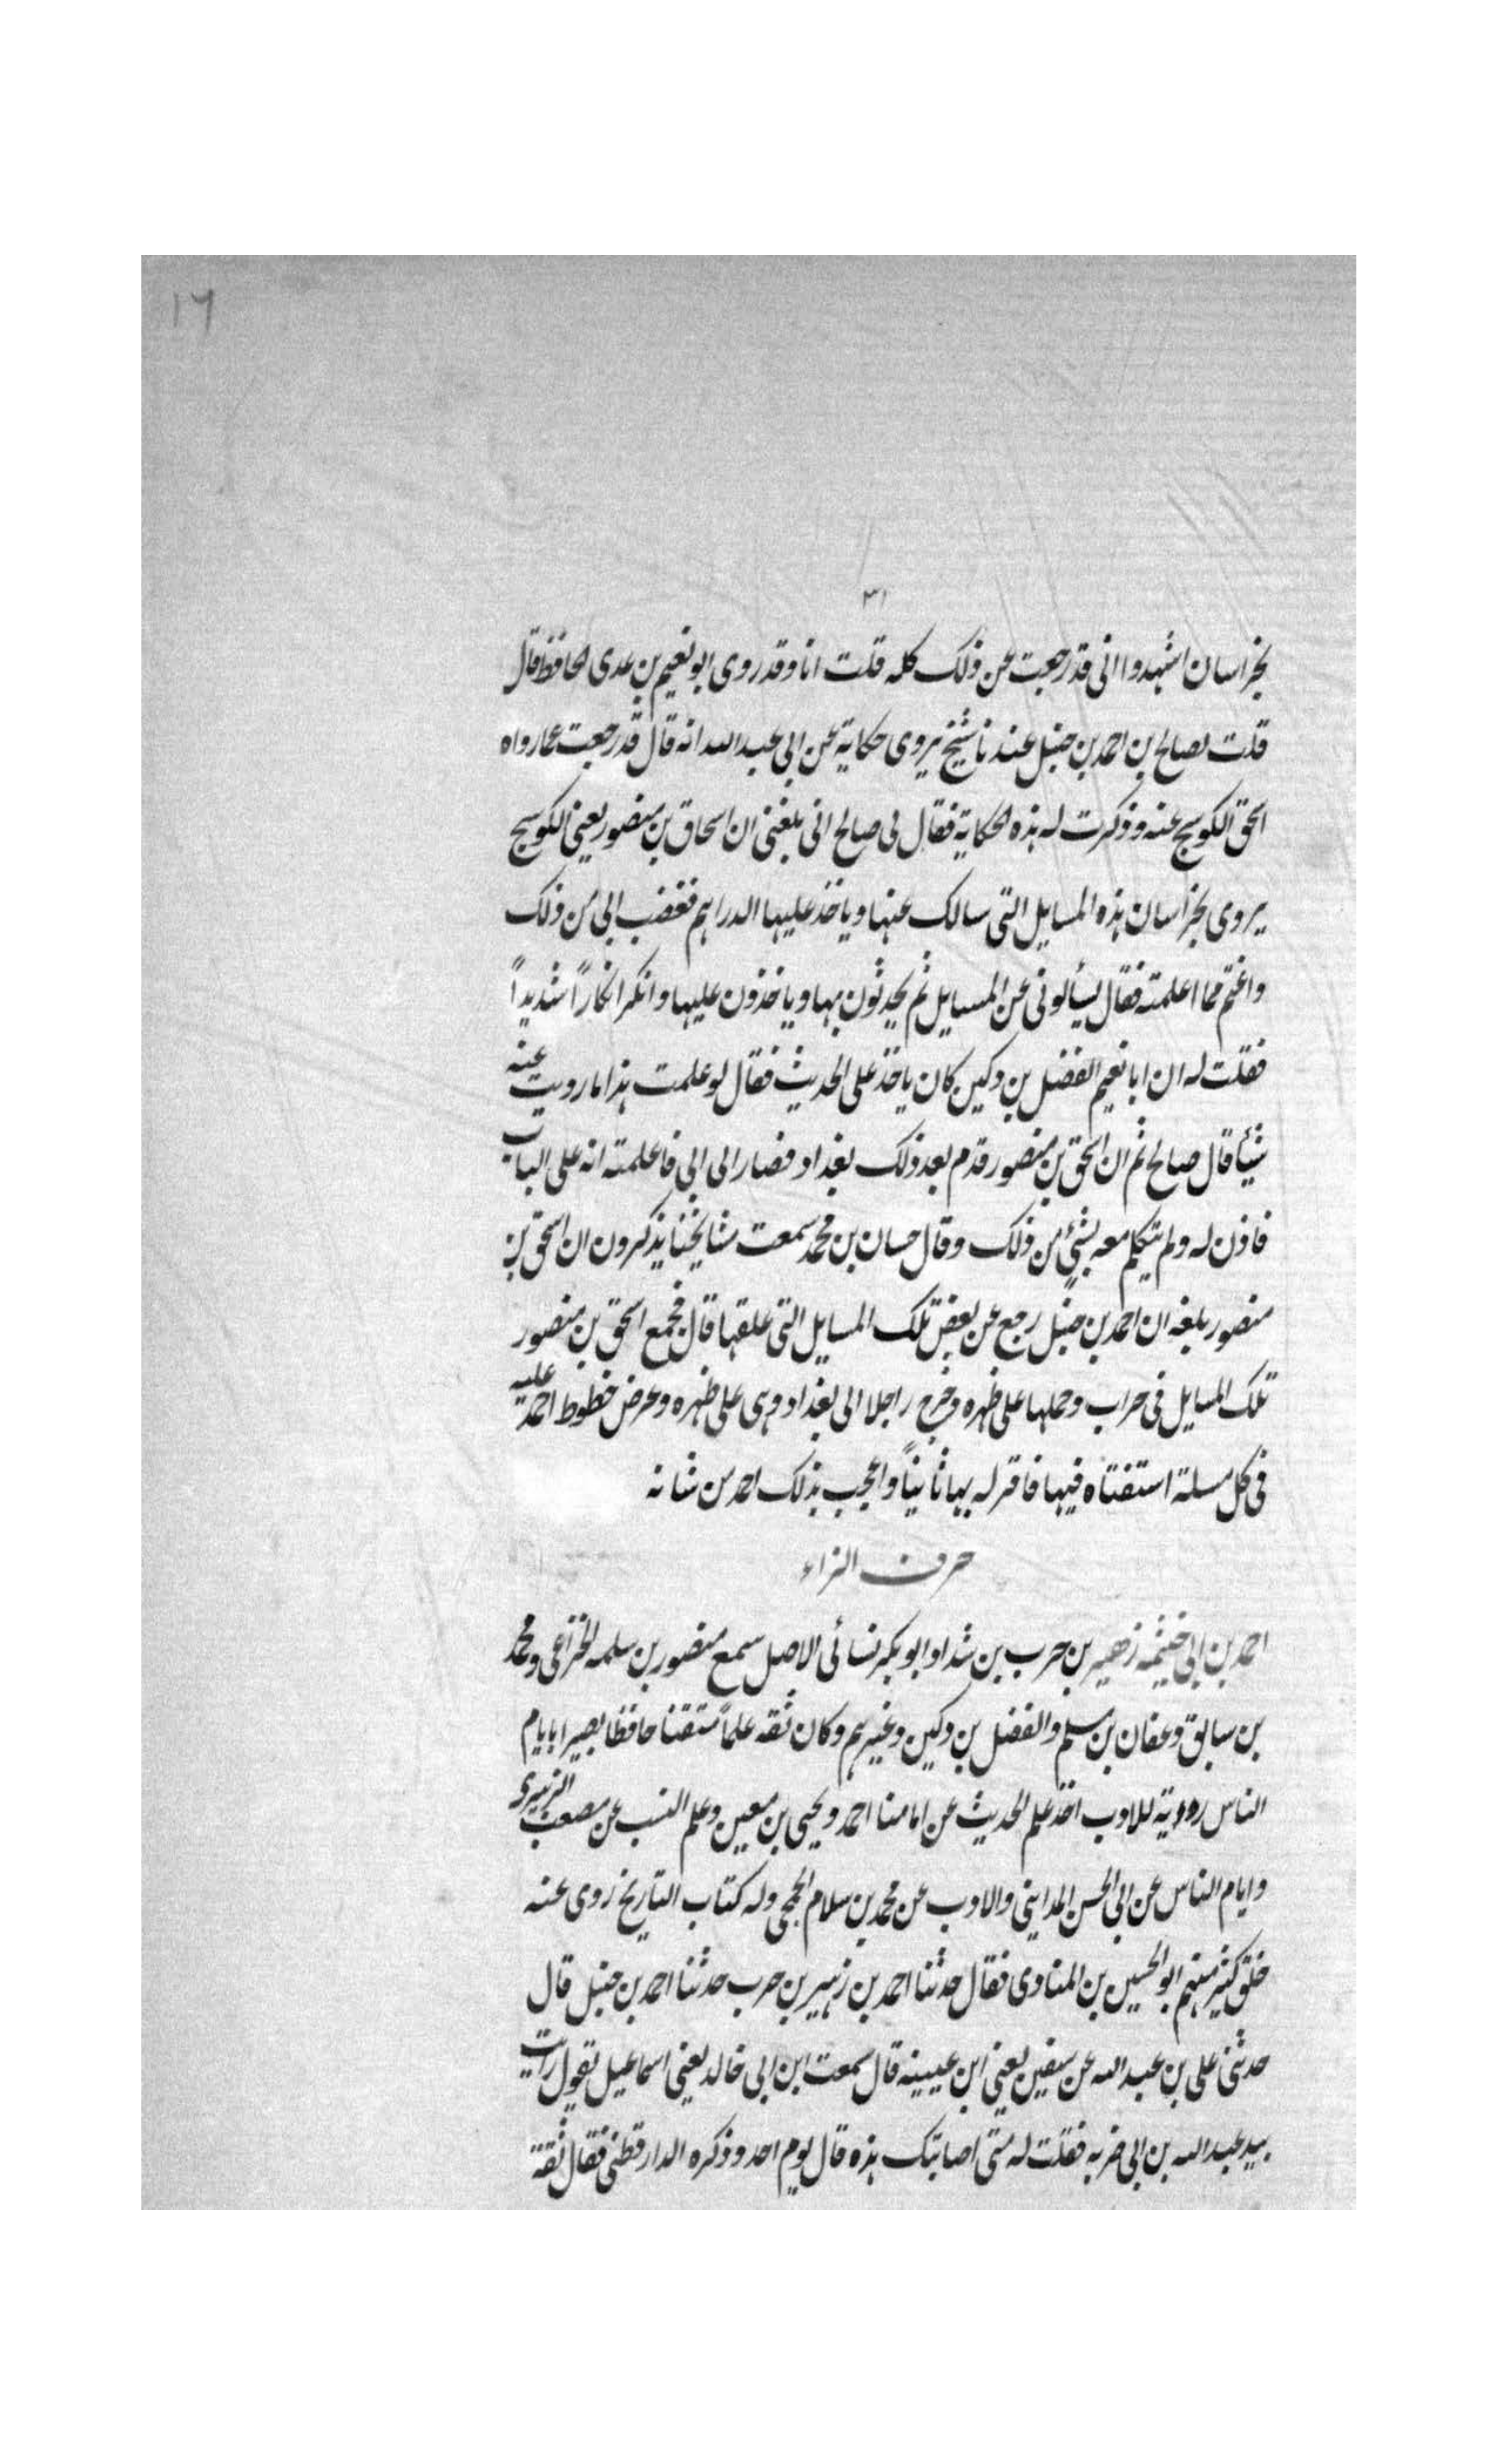 ١٦
٣١
بخراسان اشهدوا انى قد رجعت عن ذلك كله قلت انا وقد روى ابو نعيم بن عدى الحافظ قال
قلت لصالح بن احمد بن حنبل عندنا شيخ يروى حكاية عن ابى عبد الله انه قال قد رجعت عما رواه
اسحق الكوسج عنه وذكرت له هذه الحكاية فقال لى صالح انى بلغنى ان اسحاق بن منصور يعنى الكوسج
يروى بخراسان هذه المسايل التى سالك عنها وياخذ عليها الدراهم فغضب ابى من ذلك
واغتم مما اعلمته فقال يسألونى عن المسايل ثم يحدثون بها وياخذون عليها وانكر انكاراً شديداً
فقلت له ان ابا نعيم الفضل بن دكين كان ياخذ على الحديث فقال لو علمت هذا ما رويت عنه
شيئاً قال صالح ثم ان اسحق بن منصور قدم بعد ذلك بغداد فصار الى ابى فاعلمته انه على الباب
فاذن له ولم يتكلم معه بشئ من ذلك وقال حسان بن محمد سمعت مشايخنا يذكرون ان اسحق بن
منصور بلغه ان احمد بن حنبل رجع عن بعض تلك المسايل التى علقها قال فجمع اسحق بن منصور
تلك المسايل فى جراب وحملها على ظهره وخرج راجلا الى بغداد وهى على ظهره وعرض خطوط احمد عليه
فى كل مسلة استفتاه فيها فاقر له بها ثانياً واعجب بذلك احمد من شانه
حرف الزاء
احمد بن ابى خيثمه زهير بن حرب بن شداد ابو بكر نسائى الاصل سمع منصور بن سلمه الخزاعى ومحمد
بن سابق وعفان بن مسلم والفضل بن دكين وغيرهم وكان ثقه علماً متقنا حافظا بصيرا بايام
الناس رواية للادب اخذ علم الحديث عن امامنا احمد ويحيى بن معين وعلم النسب عن مصعب الزبيرى
وايام الناس عن ابى الحسن المداينى والادب عن محمد بن سلام الجمحى وله كتاب التاريخ روى عنه
خلق كثير منهم ابو الحسين بن المنادى فقال حدثنا احمد بن زهير بن حرب حدثنا احمد بن حنبل قال
حدثنى على بن عبد الله عن سفين يعنى ابن عيينه قال سمعت ابن ابى خالد يعنى اسماعيل يقول رايت
بيد عبد الله بن ابى ضربه فقلت له متى اصابتك هذه قال يوم احد وذكره الدارقطنى فقال ثقة